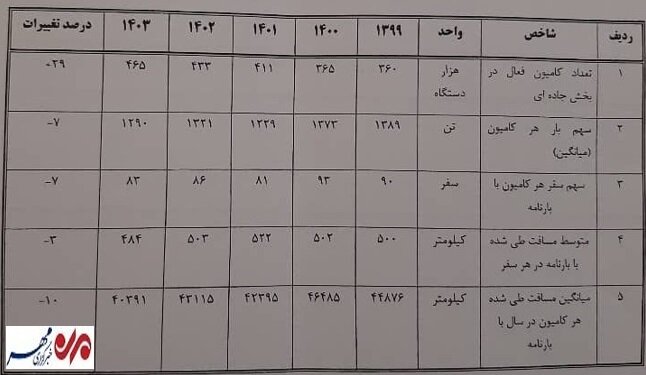 ردیف شاخص واحد ۱۳۹۹ ۱۴۰۰ ۱۴۰۱ ۱۴۰۲ ۱۴۰۳ درصد تغییرات
۱ تعداد کامیون فعال در هزار ۳۶۰ ۳۶۵ ۴۱۱ ۴۳۳ ۴۶۵ ۲۹+
بخش جاده ای دستگاه
۲ سهم بار هر کامیون تن ۱۳۸۹ ۱۳۷۳ ۱۲۲۹ ۱۳۲۱ ۱۲۹۰ ۷-
(میانگین)
۳ سهم سفر هر کامیون با سفر ۹۰ ۹۳ ۸۱ ۸۶ ۸۳ ۷-
بارنامه
۴ متوسط مسافت طی شده کیلومتر ۵۰۰ ۵۰۲ ۵۲۲ ۵۰۳ ۴۸۴ ۳-
با بارنامه در هر سفر
۵ میانگین مسافت طی شده کیلومتر ۴۴۸۷۶ ۴۶۴۸۵ ۴۲۳۹۵ ۴۳۱۱۵ ۴۰۳۹۱ ۱۰-
هر کامیون در سال با
بارنامه
خبرگزاری مهر